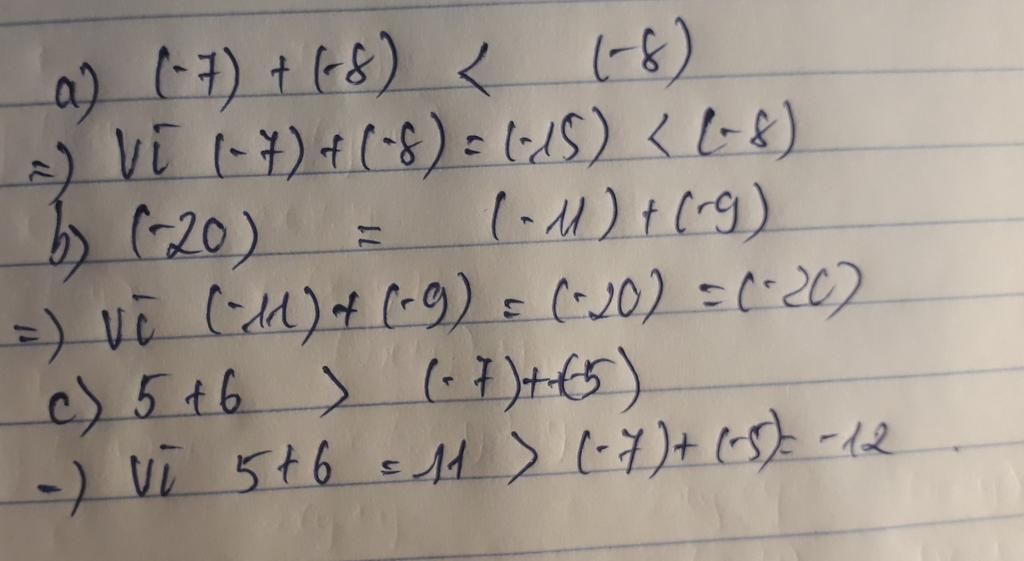 a) (-7) + (-8) < (-8)
=) Vì (-7) + (-8) = (-15) < (-8)
b) (-20) = (-11) + (-9)
=) Vì (-11) + (-9) = (-20) = (-20)
c) 5 + 6 > (-7) + (-5)
-) Vì 5 + 6 = 11 > (-7) + (-5) = -12